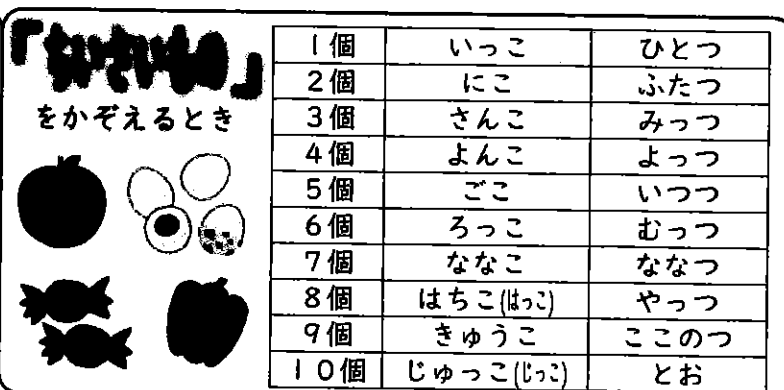 「ちいさいもの」
をかぞえるとき
1個 いっこ ひとつ
2個 にこ ふたつ
3個 さんこ みっつ
4個 よんこ よっつ
5個 ごこ いつつ
6個 ろっこ むっつ
7個 ななこ ななつ
8個 はちこ(はっこ) やっつ
9個 きゅうこ ここのつ
10個 じゅっこ(じっこ) とお